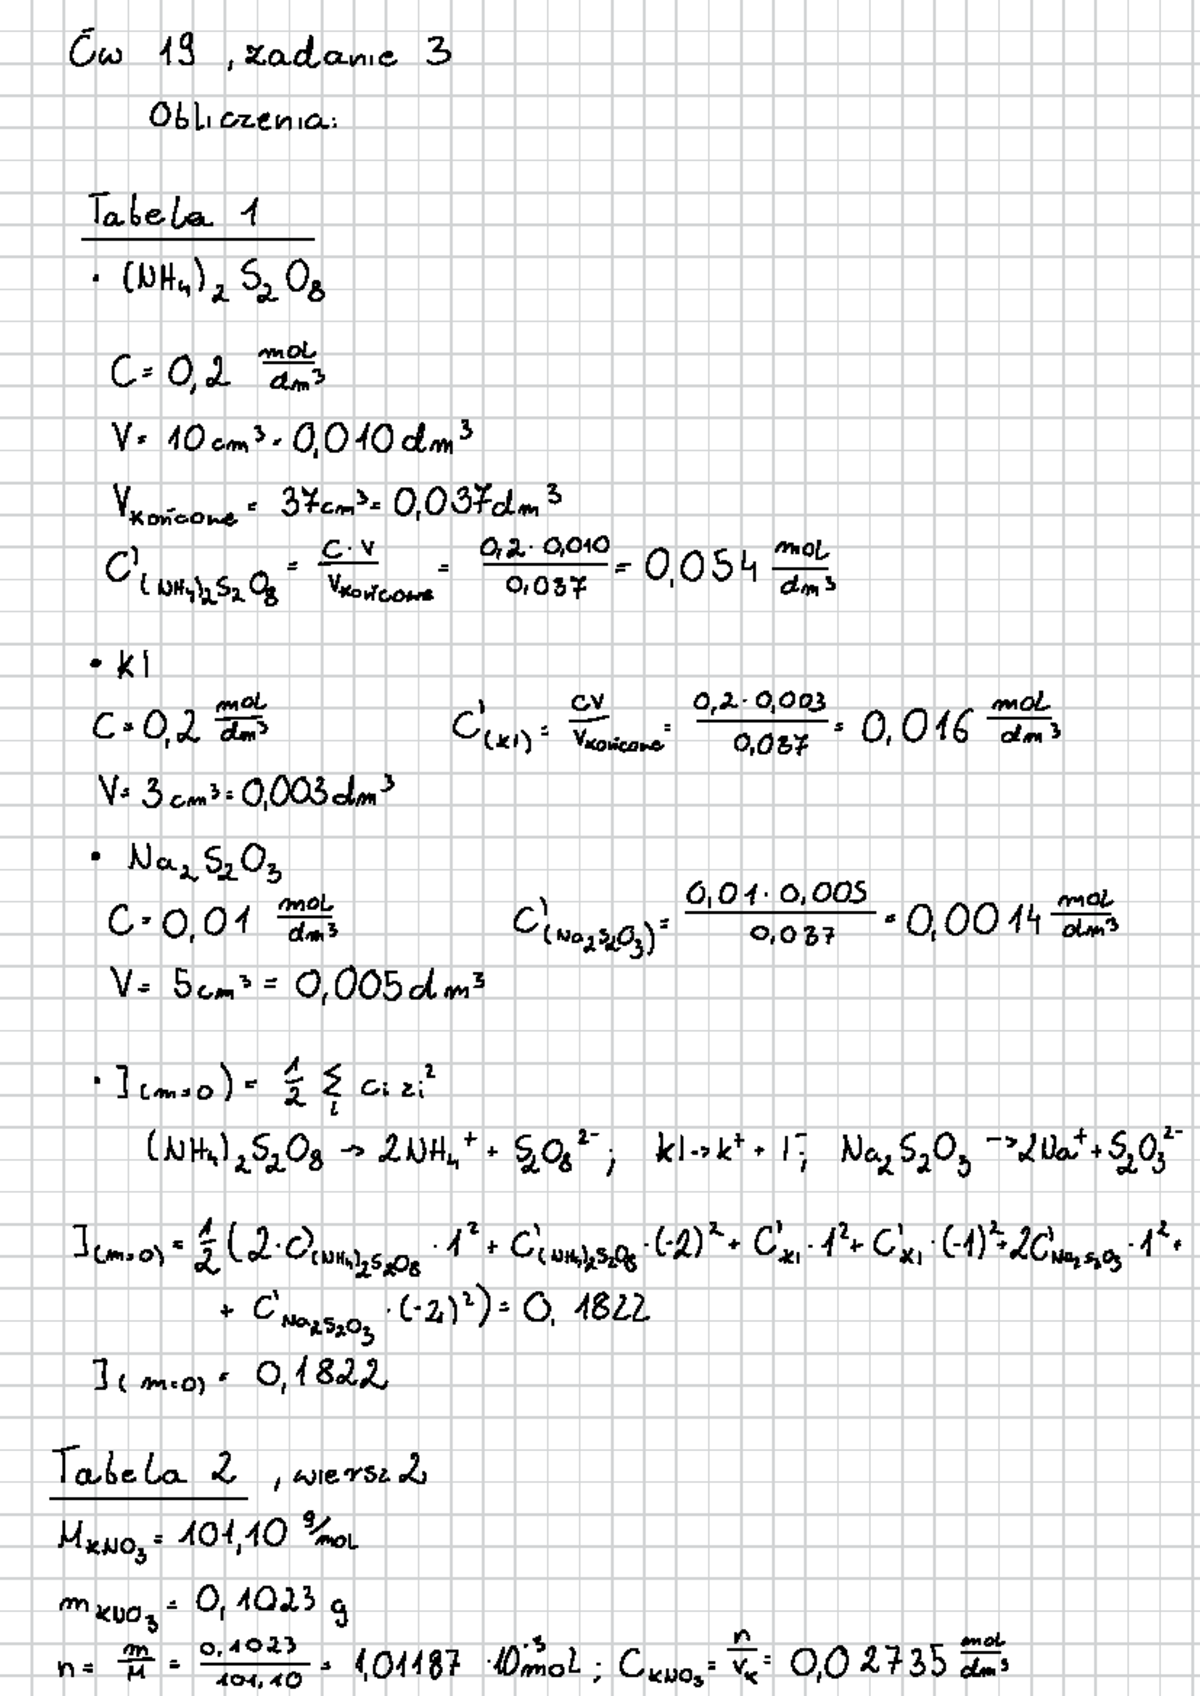 Ćw 19, zadanie 3
Obliczenia:
Tabela 1
• (NH₄)₂S₂O₈
C = 0,2 mol/dm³
V = 10 cm³ = 0,010 dm³
Vkońcowe = 37 cm³ = 0,037 dm³
C'(NH₄)₂S₂O₈ = C·V/Vkońcowe = 0,2·0,010/0,037 = 0,054 mol/dm³
• KI
C = 0,2 mol/dm³ C'(KI) = CV/Vkońcowe = 0,2·0,003/0,037 = 0,016 mol/dm³
V = 3 cm³ = 0,003 dm³
• Na₂S₂O₃
C = 0,01 mol/dm³ C'(Na₂S₂O₃) = 0,01·0,005/0,037 = 0,0014 mol/dm³
V = 5 cm³ = 0,005 dm³
• I(m=0) = 1/2 Σi ci zi²
(NH₄)₂S₂O₈ → 2NH₄⁺ + S₂O₈²⁻; KI → K⁺ + I⁻; Na₂S₂O₃ → 2Na⁺ + S₂O₃²⁻
I(m=0) = 1/2 (2·C'(NH₄)₂S₂O₈ · 1² + C'(NH₄)₂S₂O₈ · (-2)² + C'KI · 1² + C'KI · (-1)² + 2C'Na₂S₂O₃ · 1² +
+ C'Na₂S₂O₃ · (-2)²) = 0,1822
I(m=0) = 0,1822
Tabela 2, wiersz 2
MKNO₃ = 101,10 g/mol
mKNO₃ = 0,1023 g
n = m/M = 0,1023/101,10 = 1,01187 · 10⁻³ mol; CKNO₃ = n/Vk = 0,02735 mol/dm³